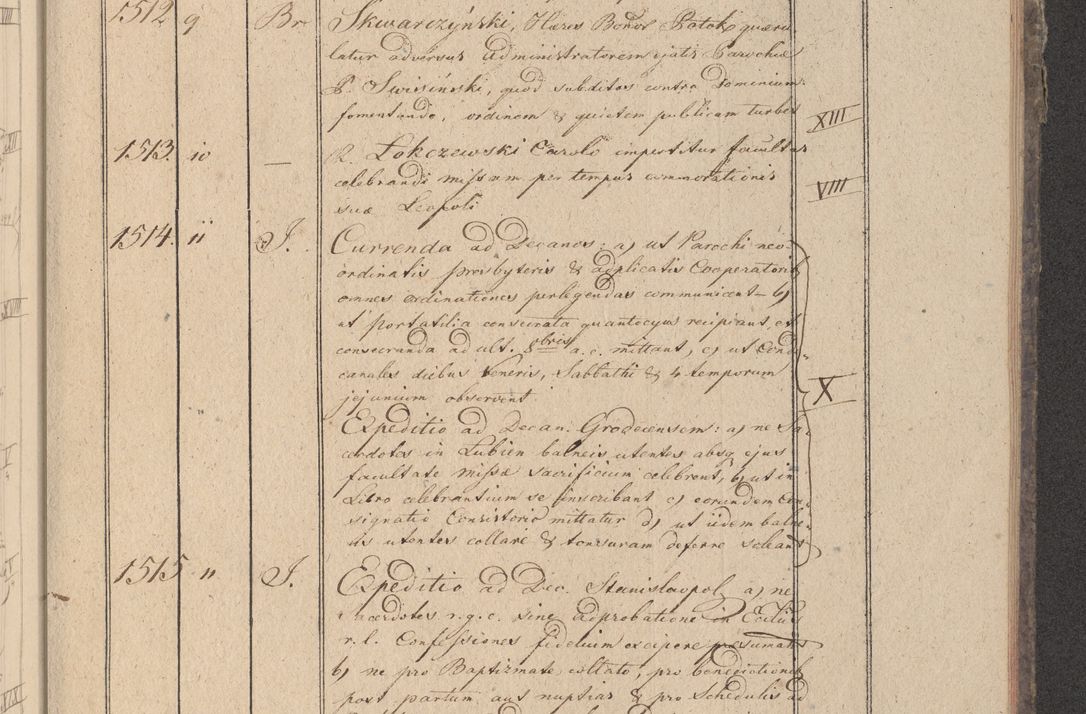 1512 9 Br Skwarczyński, Hæres Bonor Potok quæru
latur adversus administratorem ejatis Parochiæ
P. Swisiński, quod subditos contra Dominium
fomentando, ordinem & quietem publicam turbet XIII
1513. 10 — R. Łokczewski Carolo impertitur facultas
celebrandi missam per tempus commorationis VIII
suæ Leopoli
1514. 11 J. Currenda ad Decanos: a) ut Parochi neo-
ordinatis presbyteris & applicatis Cooperatorib
omnes ordinationes perlegendas communicent – b)
ut portatilia consecrata quantocyus recipiant, et
consecranda ad ult. 8bris a. c. mittant, c) ut
canales diebus Veneris, Sabbathi & 4 temporum
jejunium observent X
Expeditio ad Decan. Grodecensem: a) ne Sa-
cerdotes in Lubien balneis utentes absq ejus
facultate missæ sacrificium celebrent, b) ut in
Libro celebrantium se inscribant c) eorundem Con
signatio Consistorio mittatur d) ut iidem balne
is utentes collare & tonsuram deferre soleant
1515 11 J. Expeditio ad Dec. Stanislaopol. a) ne
Sacerdotes r. g. c. sine adprobatione in Eccliis
r. l. Confessiones fidelium excipere præsumant
b) ne pro Baptizmate collato, pro benedictionib
post partum aut nuptias & pro Schedulis ad